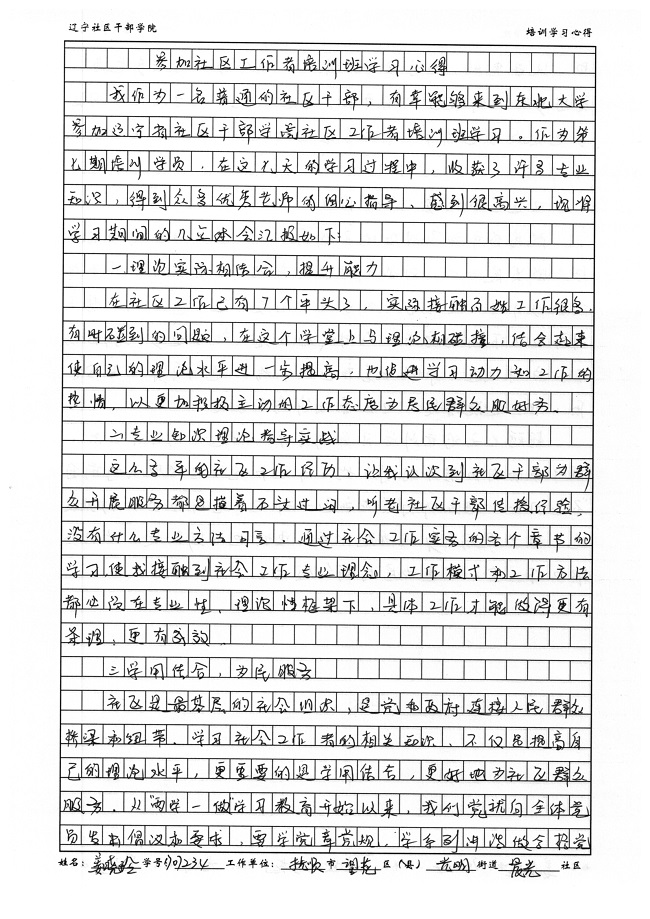 辽宁社区干部学院
培训学习心得
参加社区工作者培训班学习心得
我作为一名普通的社区干部，有幸能够来到东北大学
参加辽宁省社区干部学院社区工作者培训班学习。作为第
七期培训学员，在这七天的学习过程中，收获了许多专业
知识，得到众多优秀老师的细心指导、感到很高兴，现将
学习期间的几点体会汇报如下：
一理论实际相结合，提升能力
在社区工作已有7个年头了，实际接触工作很多，
有时碰到的问题，在这个学堂上与理论相碰撞，结合起来
使自己的理论水平进一步提高，也促进学习动力和工作的
热情，以更加积极主动的工作态度为居民群众服好务。
二专业知识理论指导实战
这么多年的社区工作经历，让我认识到社区干部为群
众开展服务都是摸着石头过河，听老社区干部传授经验，
没有什么专业方法可言，通过社会工作实务的各个章节的
学习使我接触到社会工作专业理念，工作模式和工作方法
都必须在专业性、理论性框架下，具体工作才能做得更有
条理、更有成效。
三学用结合，为民服务
社区是最基层的社会组织，是党和政府连接人民群众
桥梁和纽带、学习社会工作者的相关知识，不仅是提高自
己的理论水平，更重要的是学用结合，更好地为社区群众
服务。从“两学一做”学习教育开始以来，我们党就向全体党
员发出倡议和要求，要学党章党规，学系列讲话做合格党
姓名： 学号 1701234 工作单位： 抚顺 市 望花 区（县） 光明 街道 晨光 社区